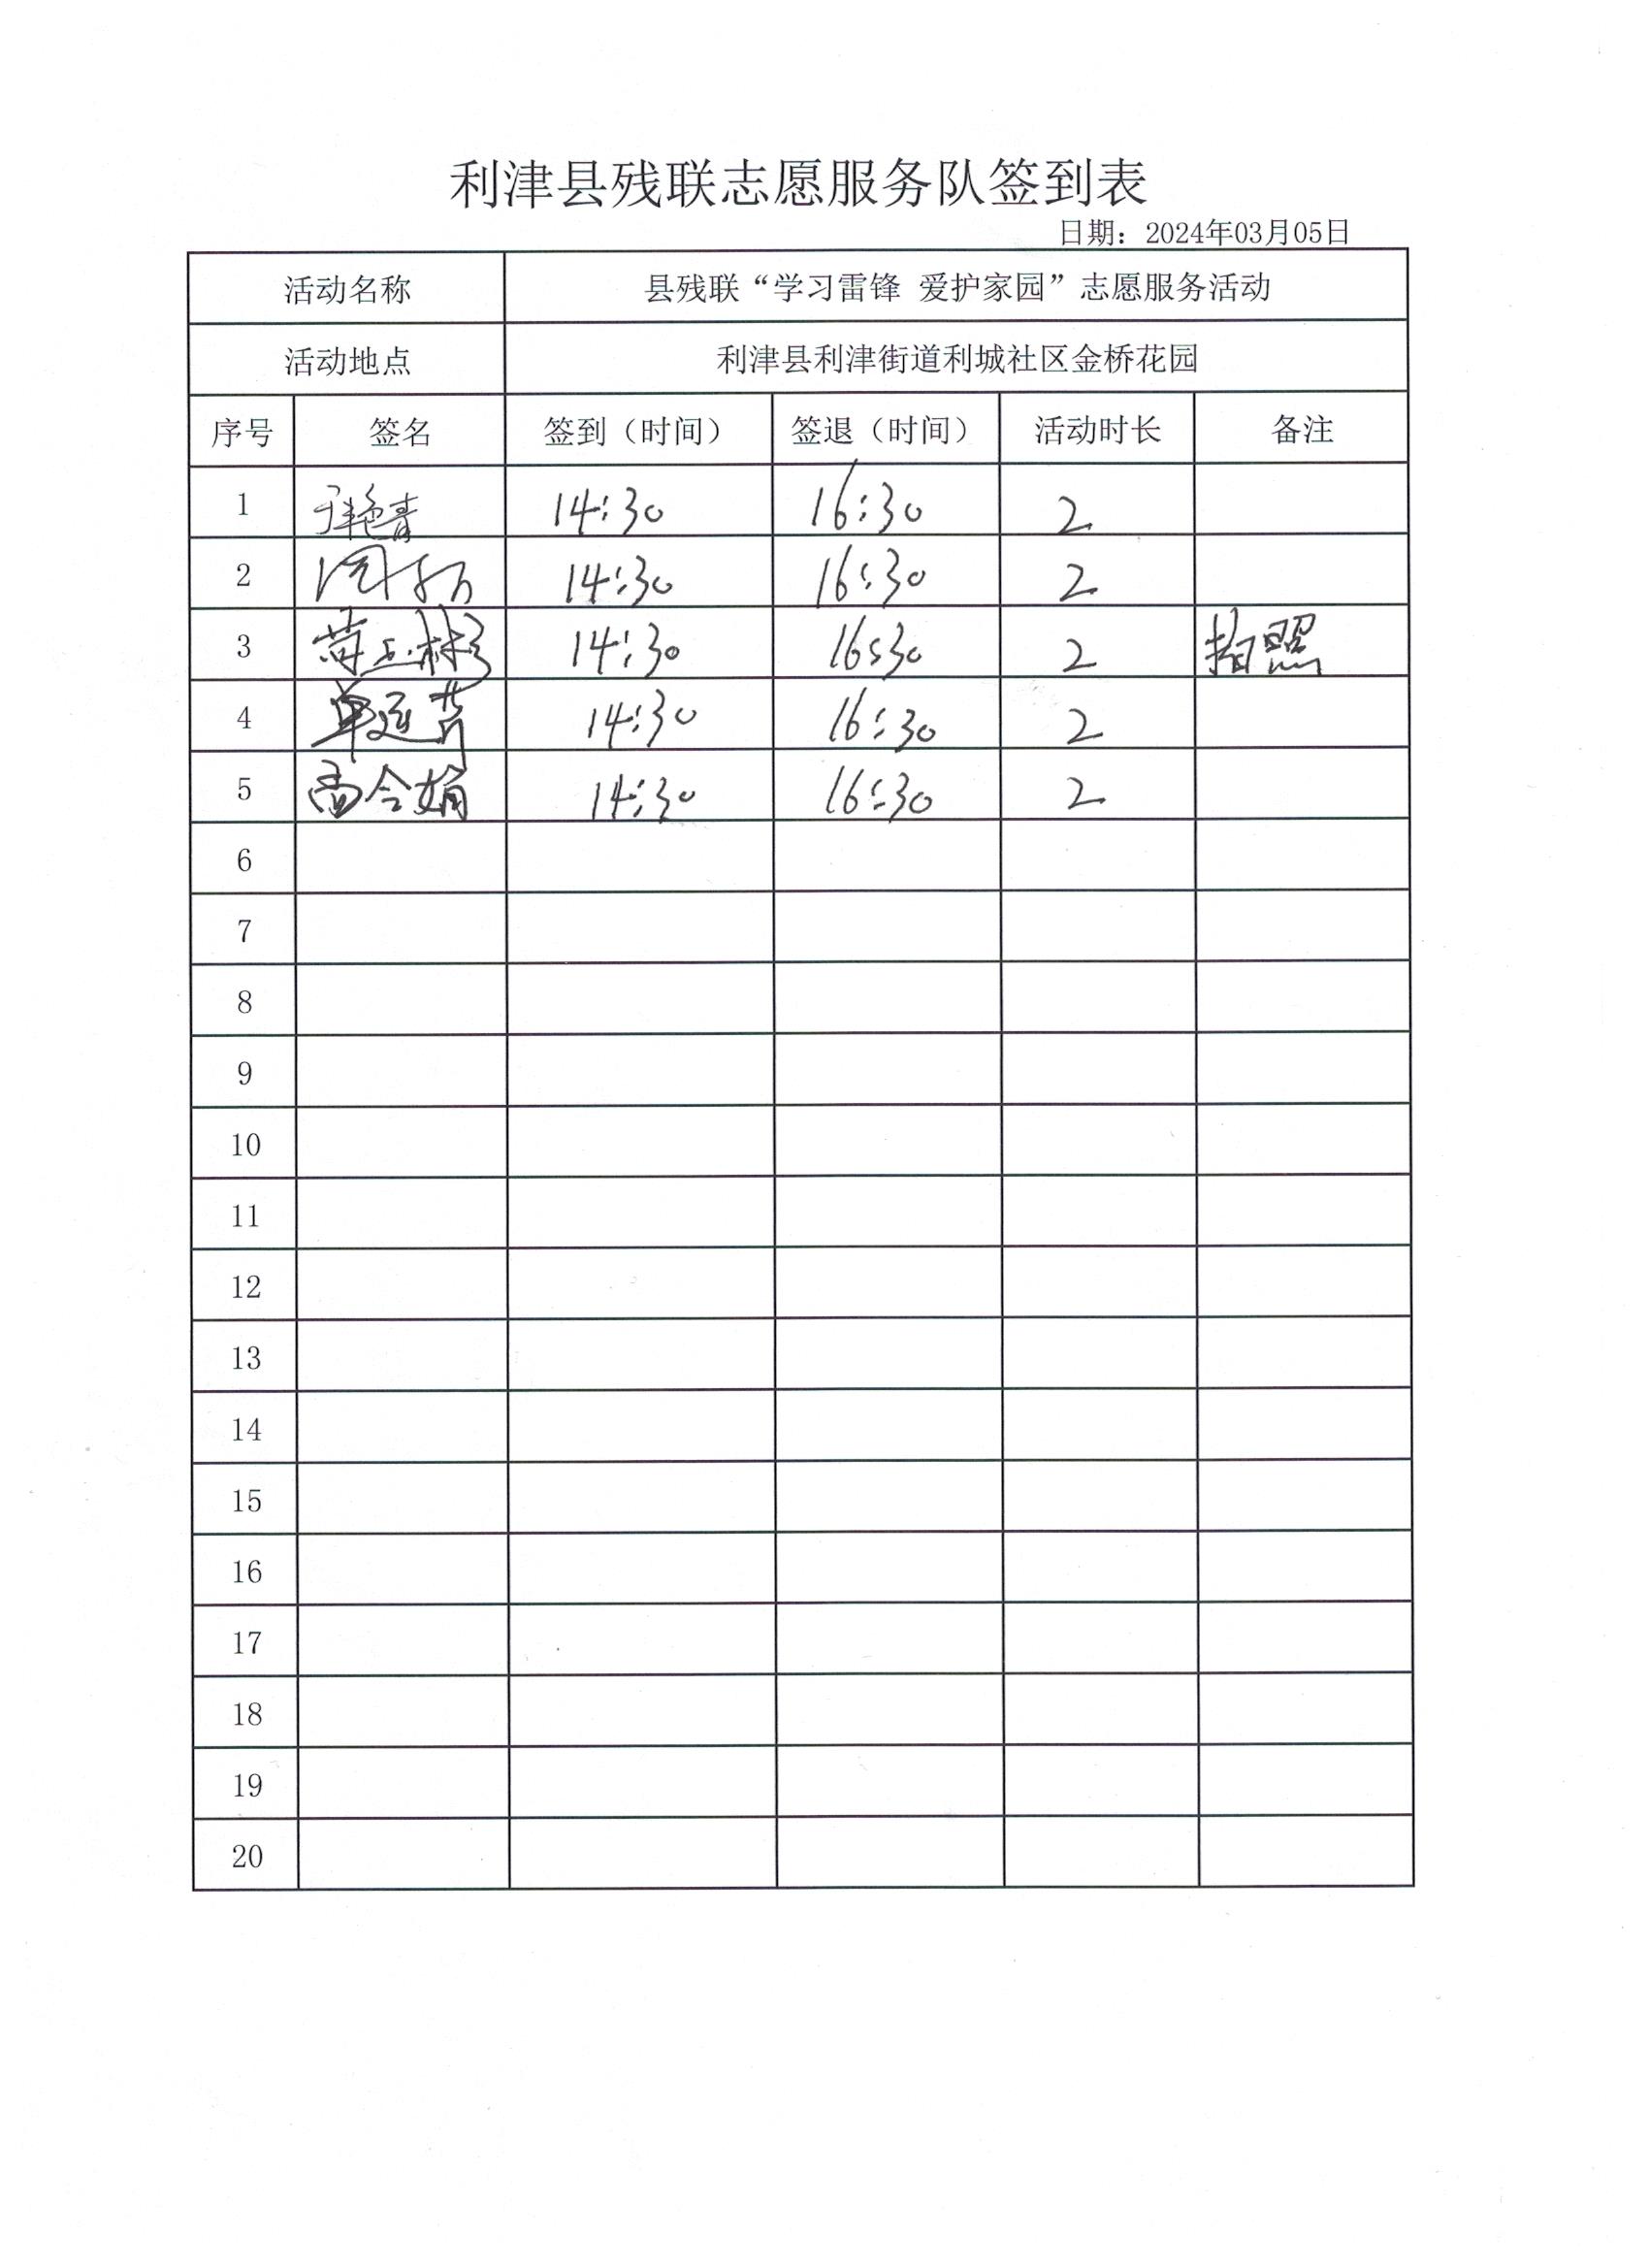 利津县残联志愿服务队签到表
日期：2024年03月05日
活动名称 县残联“学习雷锋 爱护家园”志愿服务活动
活动地点 利津县利津街道利城社区金桥花园
序号 签名 签到（时间） 签退（时间） 活动时长 备注
1 于艳青 14:30 16:30 2
2 14:30 16:30 2
3 14:30 16:30 2 拍照
4 14:30 16:30 2
5 14:30 16:30 2
6
7
8
9
10
11
12
13
14
15
16
17
18
19
20